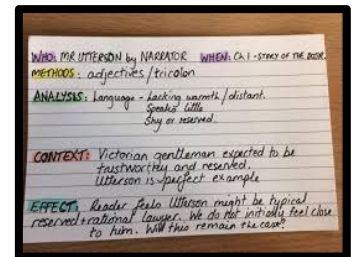 WHO: MR UTTERSON by NARRATOR WHEN: Ch 1 - STORY OF THE DOOR
METHODS: adjectives/tricolon
ANALYSIS: Language - Lacking warmth/distant.
Speaks little
Shy or reserved.
CONTEXT: Victorian gentleman expected to be
trustworthy and reserved.
Utterson is perfect example
EFFECT: Reader feels Utterson might be typical
reserved + rational lawyer. We do not initially feel close
to him. Will this remain the case?